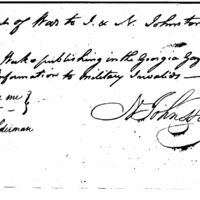 of War to I. & N. Johnston
Weeks publishing in the Georgia Gaz
nformation to Military Invalids —
me }
N Johnst